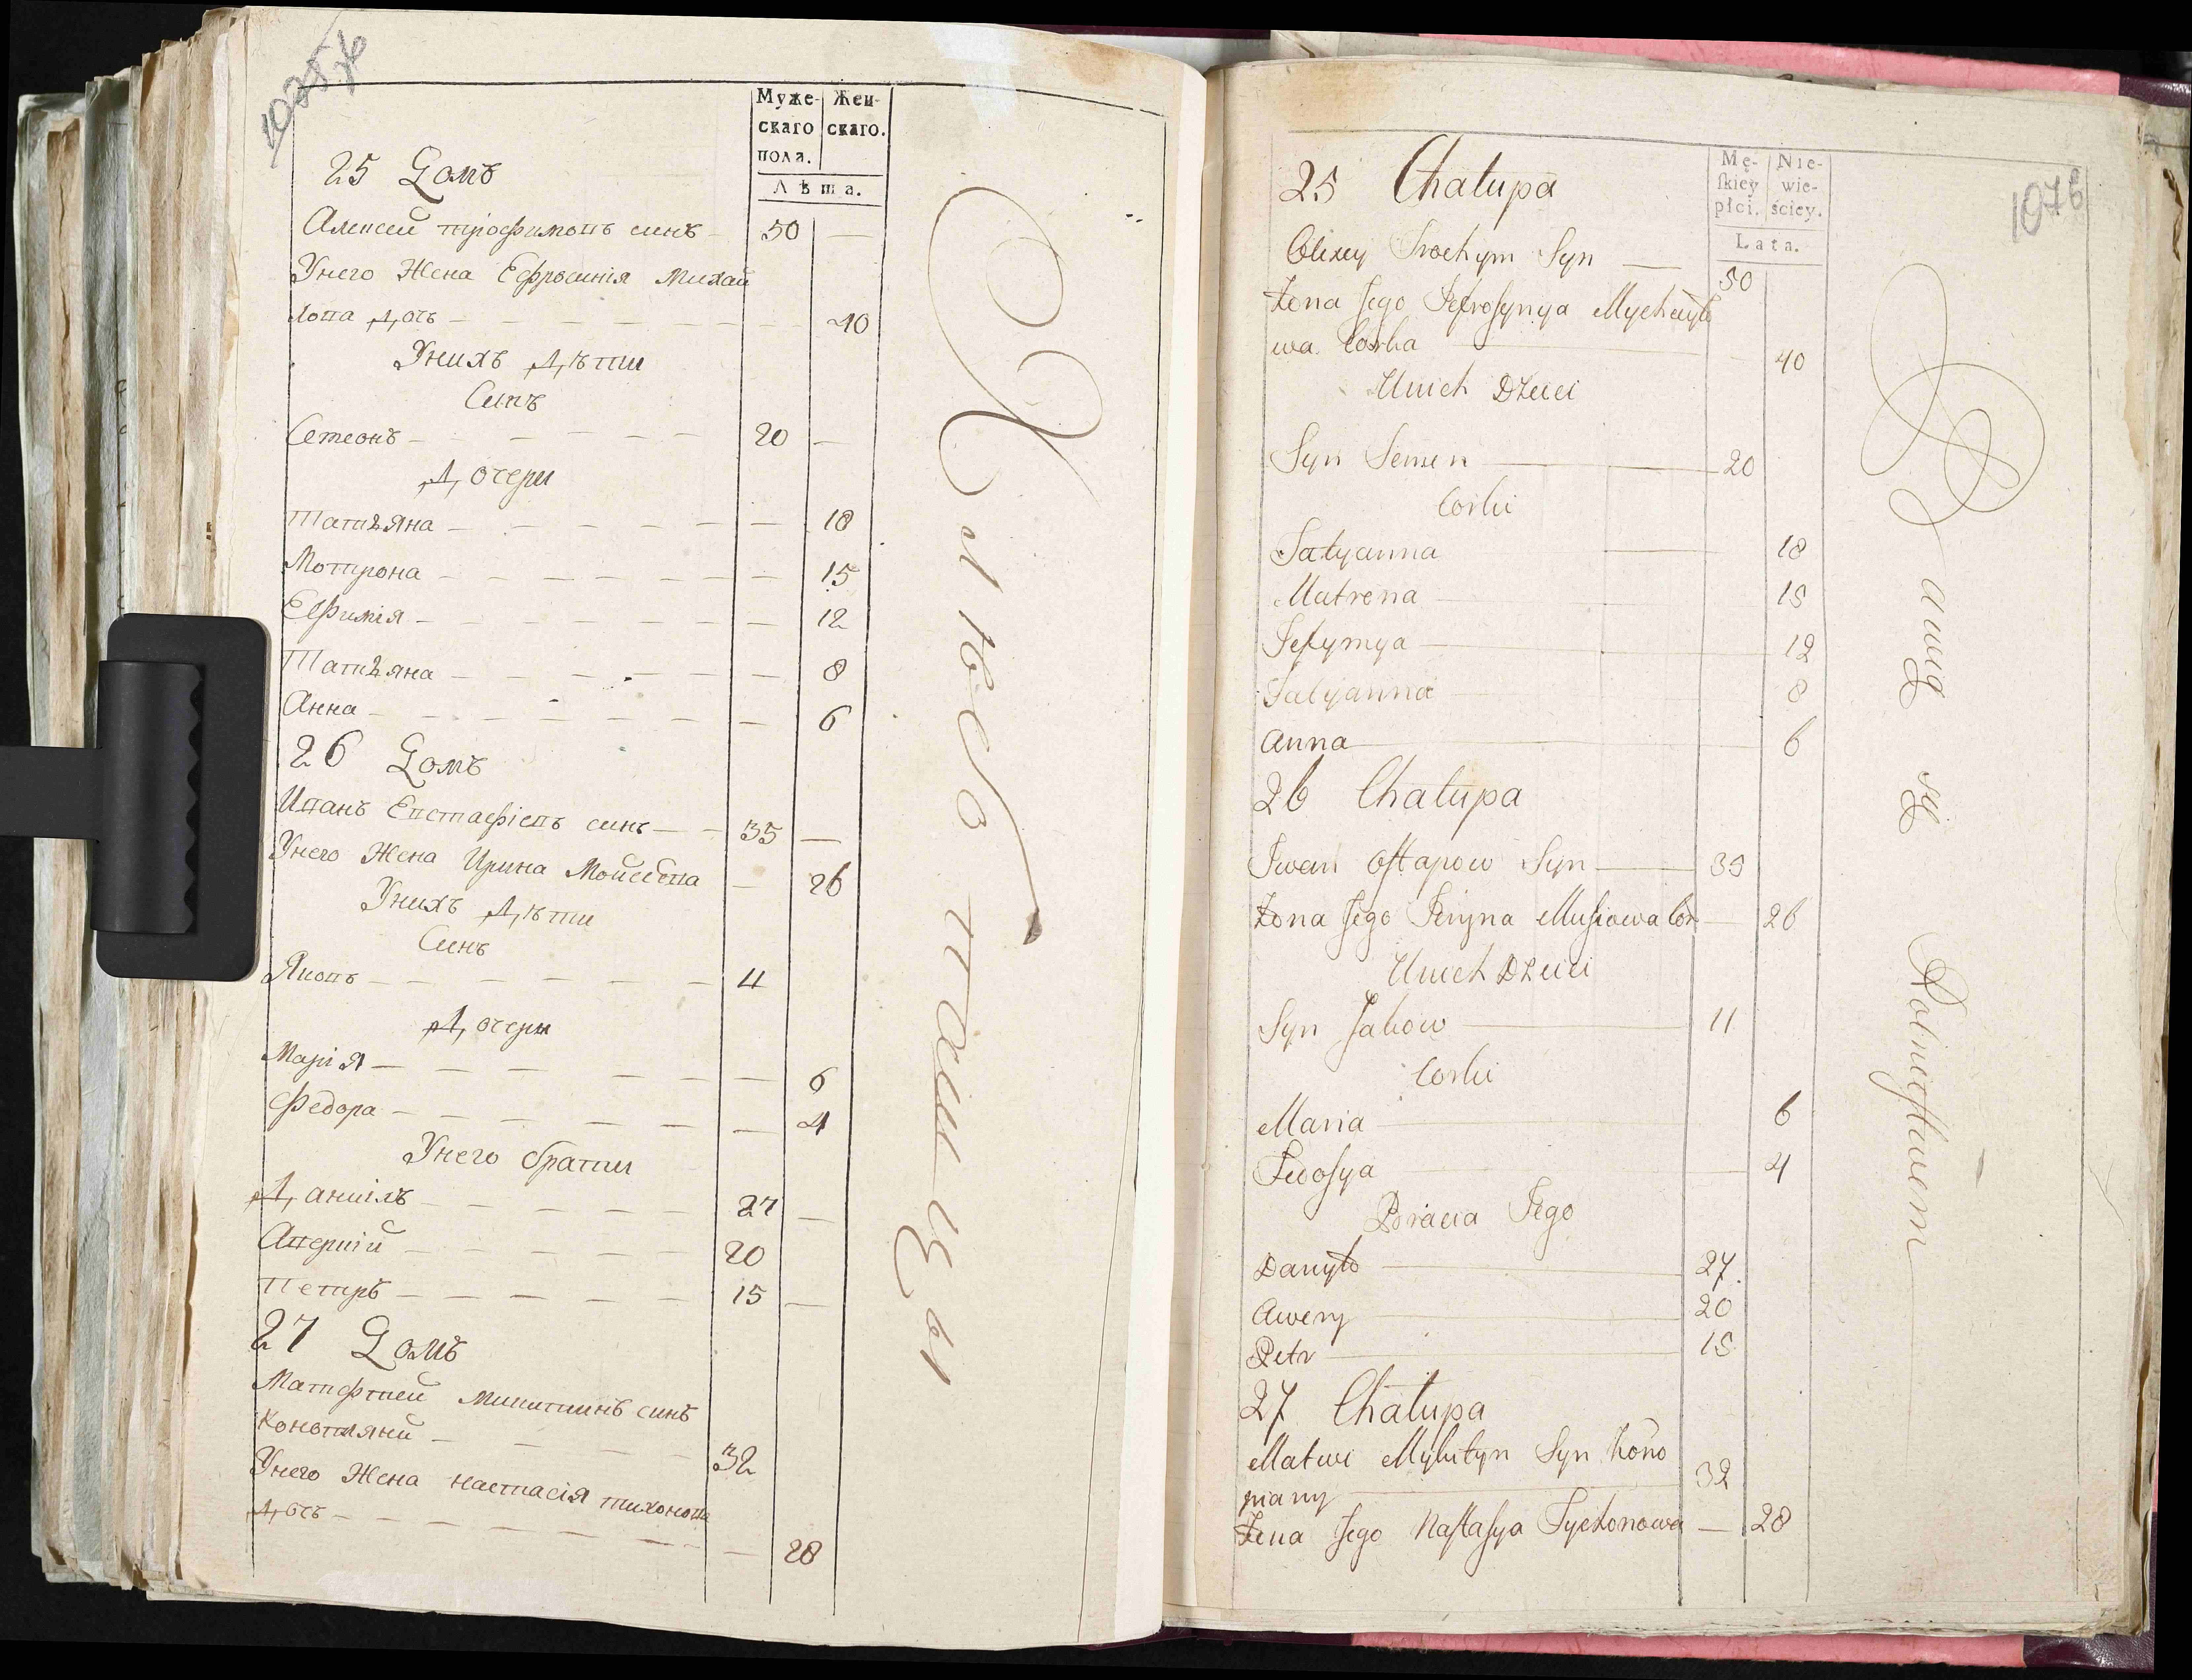 1025
Муже-
скаго
пола.
Жен-
скаго.
Лѣта.
25 Домъ
Алексей трофимовъ синъ — 50 —
Унего Жена Ефросинія Михай
лова дочъ — 40
Унихъ дѣти
Синъ
Семеонъ — 20 —
Дочери
Татіяна — 18
Мотрона — 15
Ефимія — 12
Татіяна — 8
Анна — 6
26 Домъ
Иванъ Евстафіевъ синъ — 35 —
Унего Жена Ирина Мойсеева — 26
Унихъ дѣти
Синъ
Яковъ — 11
Дочери
Марія — 6
Федора — 4
Унего брати
Даниілъ — 27 —
Аверкій — 20
Петръ — 15 —
27 Домъ
Матфтей Микитинъ синъ
Коновляний — 32
Унего Жена настасія тихонова
дочъ — 28
Хлѣбопашцы
1076
Mę-
skiey
płci.
Nie-
wie-
ściey.
Lata.
25 Chałupa
Olixey Trochym Syn — 50
Żona Jego Jefrosynya Mychayło
wa Corka — 40
Unich Dzieci
Syn Semen — 20
Corki
Tatyanna — 18
Matrena — 15
Jefymya — 12
Tatyanna — 8
Anna — 6
26 Chałupa
Iwan Ostapow Syn — 35
Żona Jego Jeryna Musiowa Cor — 26
Unich Dzieci
Syn Jakow — 11
Corki
Maria — 6
Fedosya — 4
Bracia Jego
Danyło — 27.
Awery — 20
Petr — 15
27 Chałupa
Matwi Mykityn Syn Kono
piany — 32
Żena Jego Nastasya Tychonowa — 28
Bawią się Rolnictwem